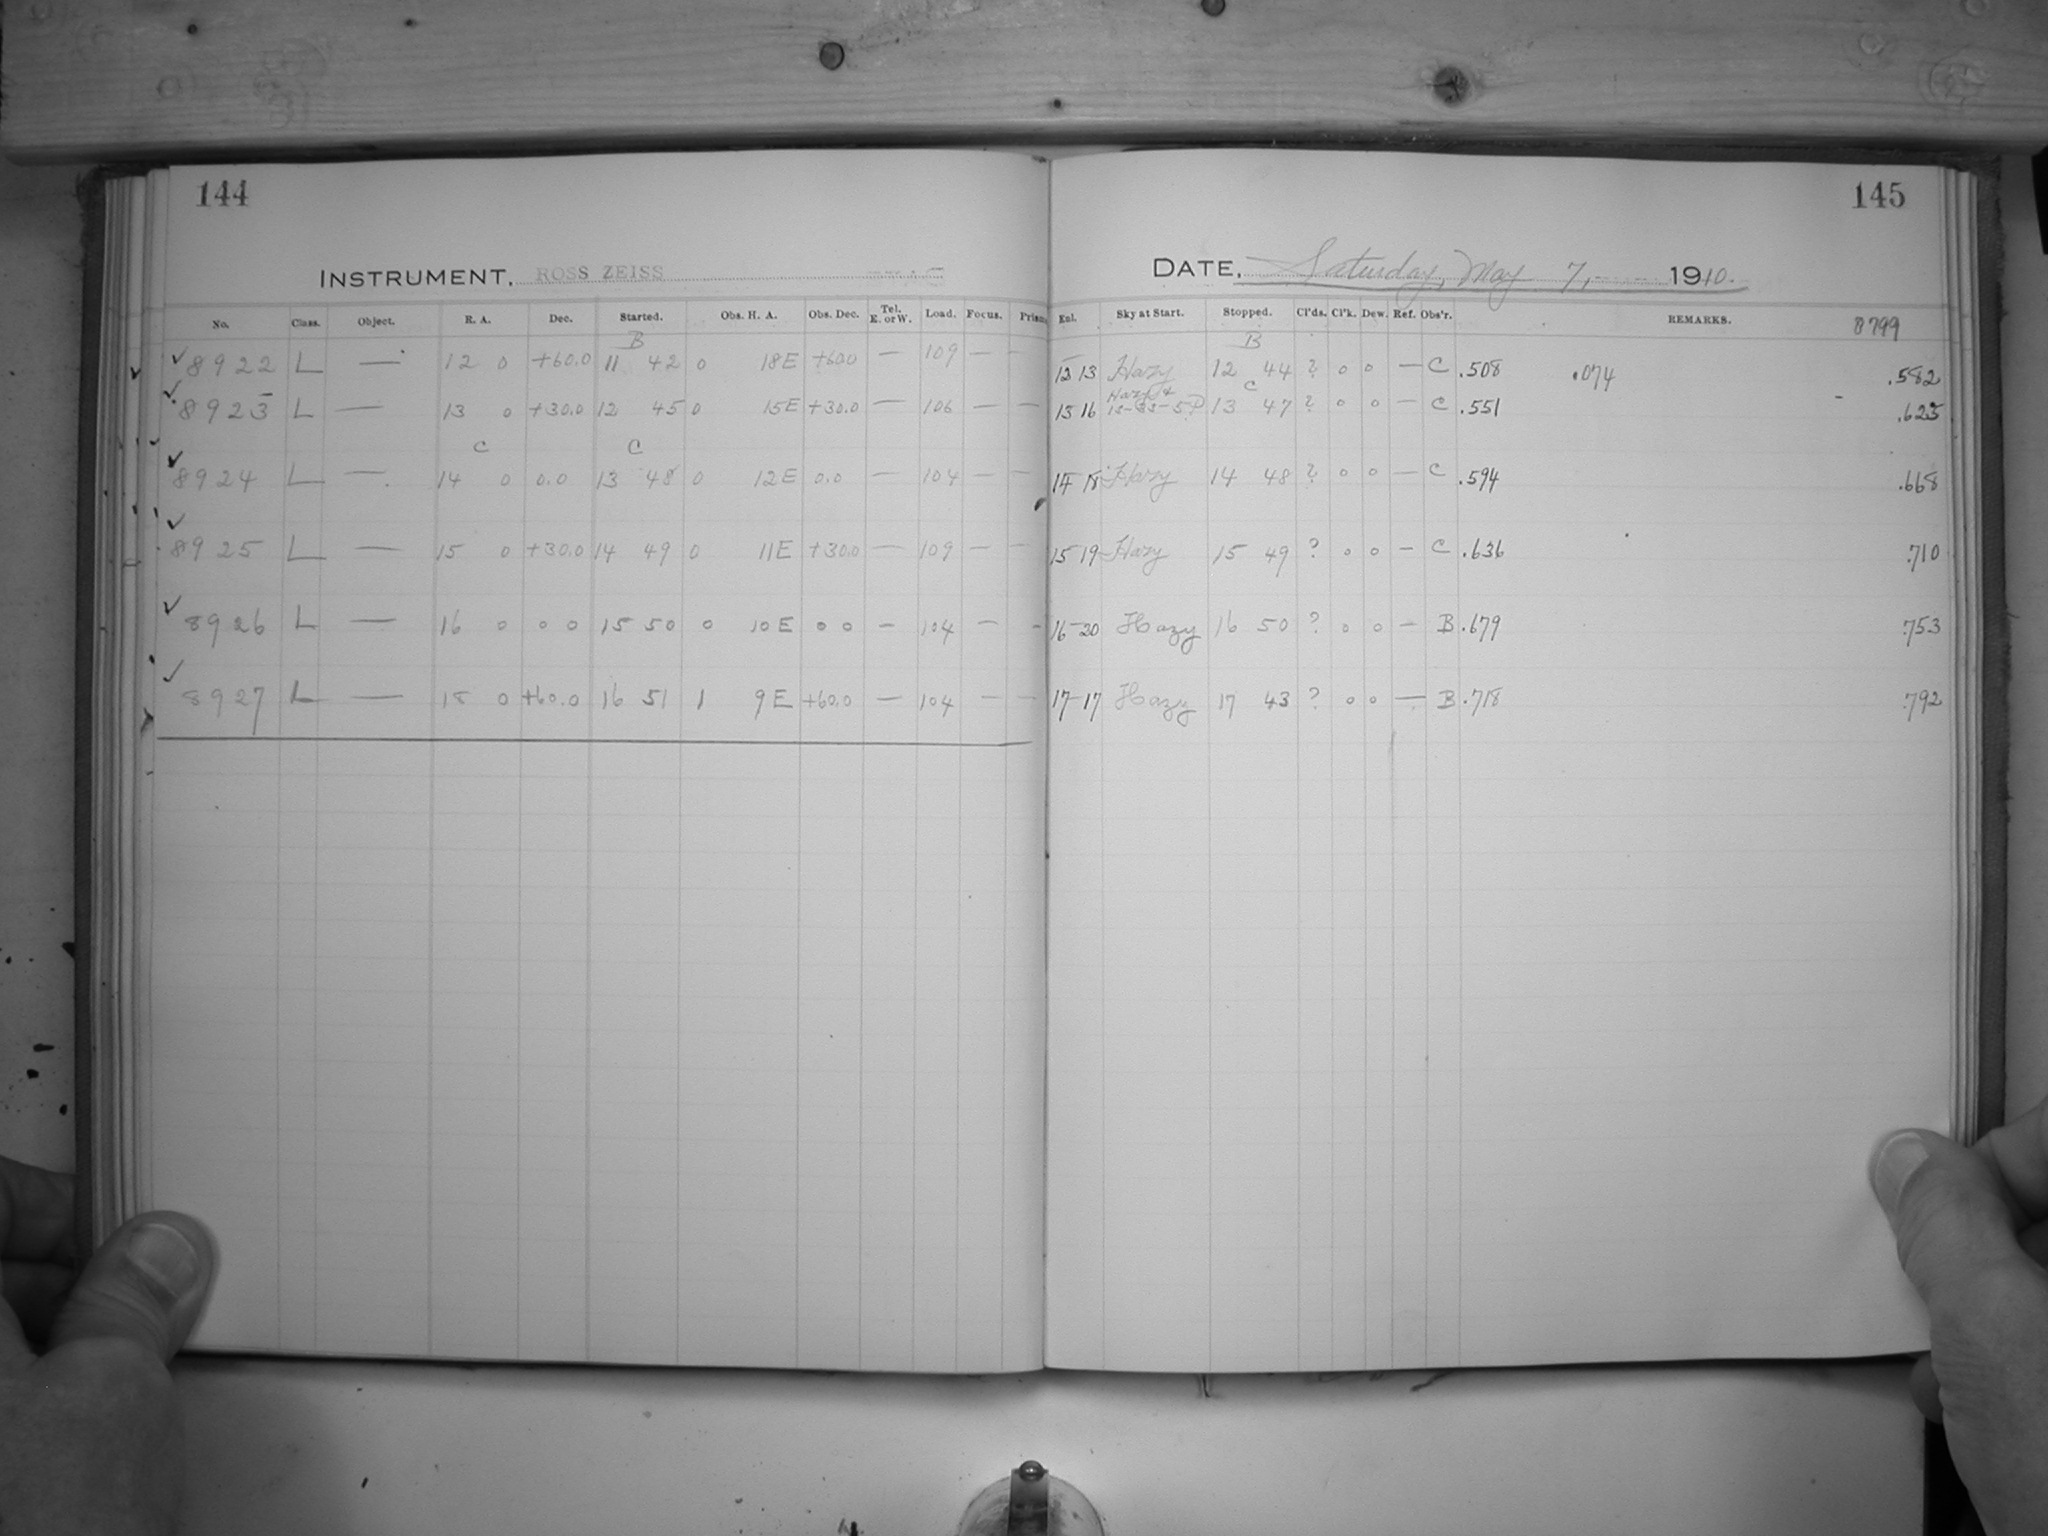 144
INSTRUMENT, ROSS ZEISS
No. Class. Object. R. A. Dec. Started. Obs. H. A. Obs. Dec. Tel. E. or W. Load. Focus. Prism
B
✓ 8922 L — 12 0 +60.0 11 42 0 18E +60.0 — 109 — —
✓ 8923 L — 13 0 +30.0 12 45 0 15E +30.0 — 106 — —
C C
✓ 8924 L — 14 0 0.0 13 48 0 12E 0.0 — 104 — —
✓ 8925 L — 15 0 +30.0 14 49 0 11E +30.0 — 109 — —
✓ 8926 L — 16 0 0 0 15 50 0 10E 0 0 — 104 — —
✓ 8927 L — 18 0 +60.0 16 51 1 9E +60.0 — 104 — —
145
DATE, Saturday, May 7, 1910.
Enl. Sky at Start. Stopped. Cl'ds. Cl'k. Dew. Ref. Obs'r. REMARKS. 8799
B
12 13 Hazy 12 44 ? 0 0 — C .508 .074 .582
C
13 16 Hazy 13 47 ? 0 0 — C .551 .625
14 18 Hazy 14 48 ? 0 0 — C .594 .668
15 19 Hazy 15 49 ? 0 0 — C .636 .710
16-20 Hazy 16 50 ? 0 0 — B .679 .753
17-17 Hazy 17 43 ? 0 0 — B .718 .792